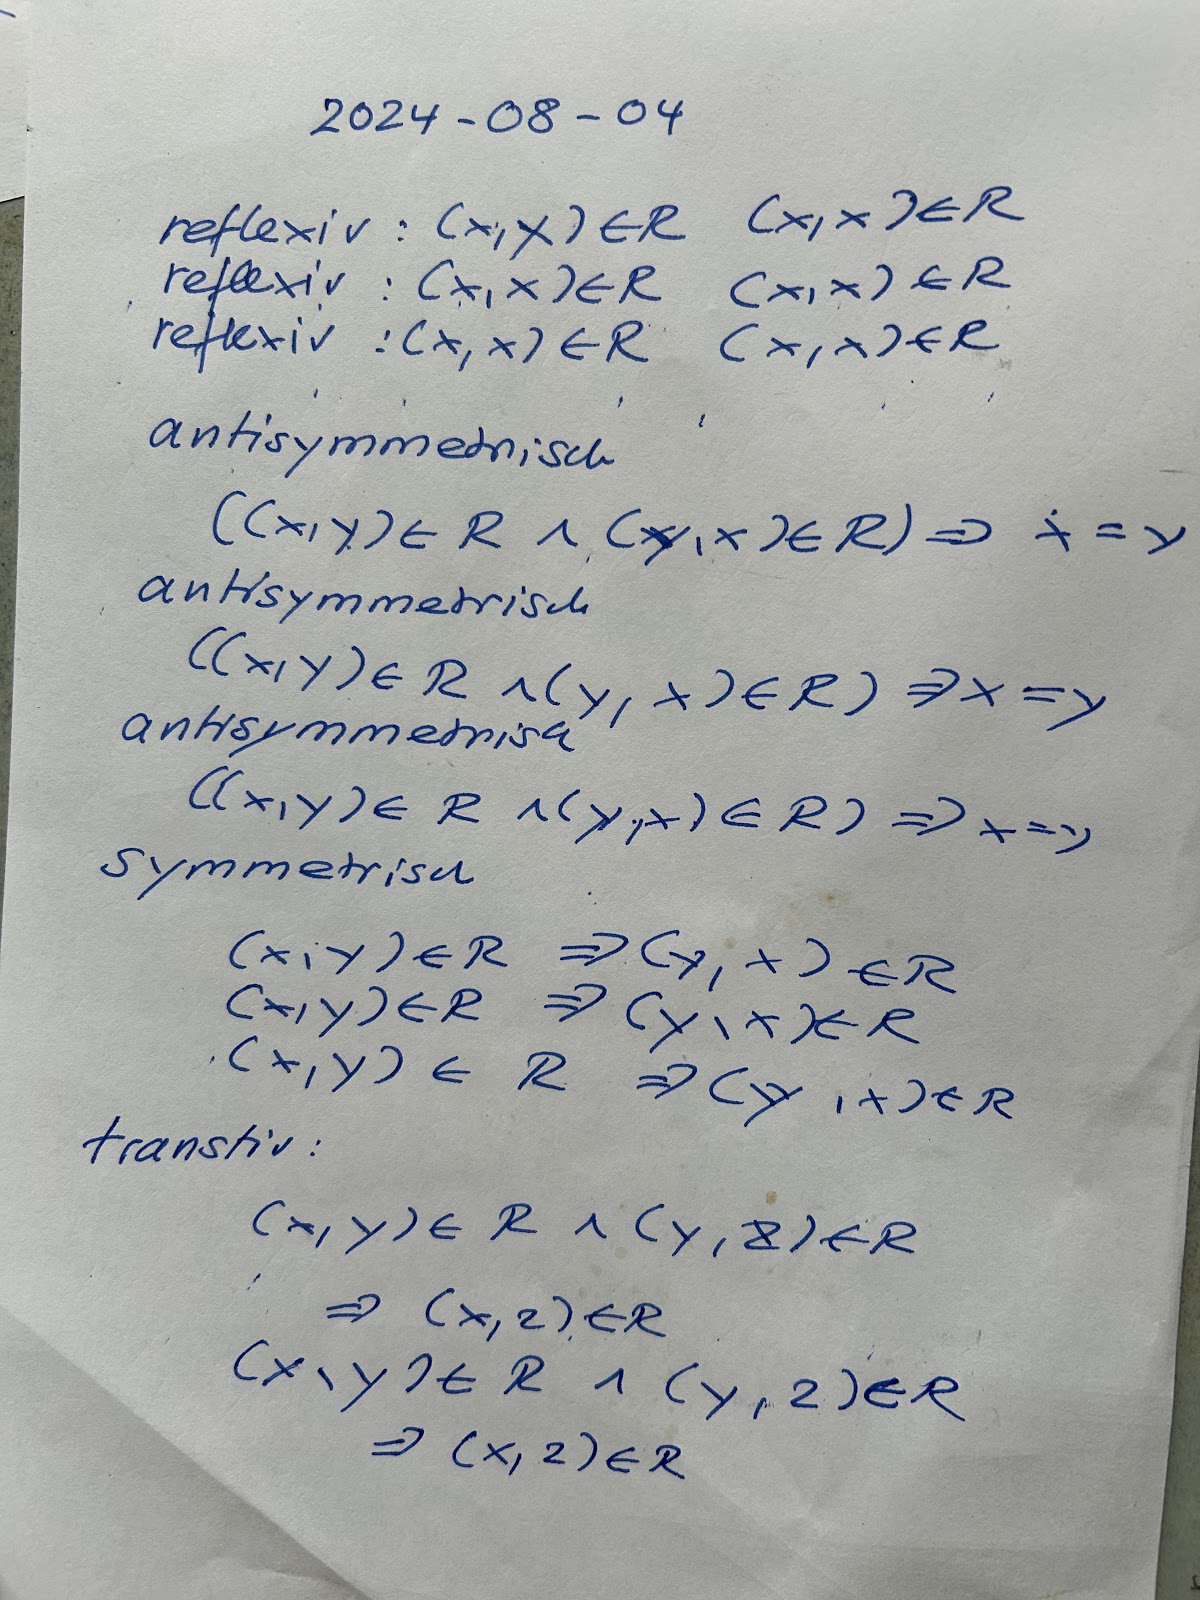 2024-08-04
reflexiv : (x,x)∈R (x,x)∈R
reflexiv : (x,x)∈R (x,x)∈R
reflexiv : (x,x)∈R (x,x)∈R
antisymmetrisch
((x,y)∈R ∧ (y,x)∈R) ⇒ x=y
antisymmetrisch
((x,y)∈R ∧ (y,x)∈R) ⇒ x=y
antisymmetrisch
((x,y)∈R ∧ (y,x)∈R) ⇒ x=y
symmetrisch
(x,y)∈R ⇒ (y,x)∈R
(x,y)∈R ⇒ (y,x)∈R
(x,y)∈R ⇒ (y,x)∈R
transtiv:
(x,y)∈R ∧ (y,z)∈R
⇒ (x,z)∈R
(x,y)∈R ∧ (y,z)∈R
⇒ (x,z)∈R